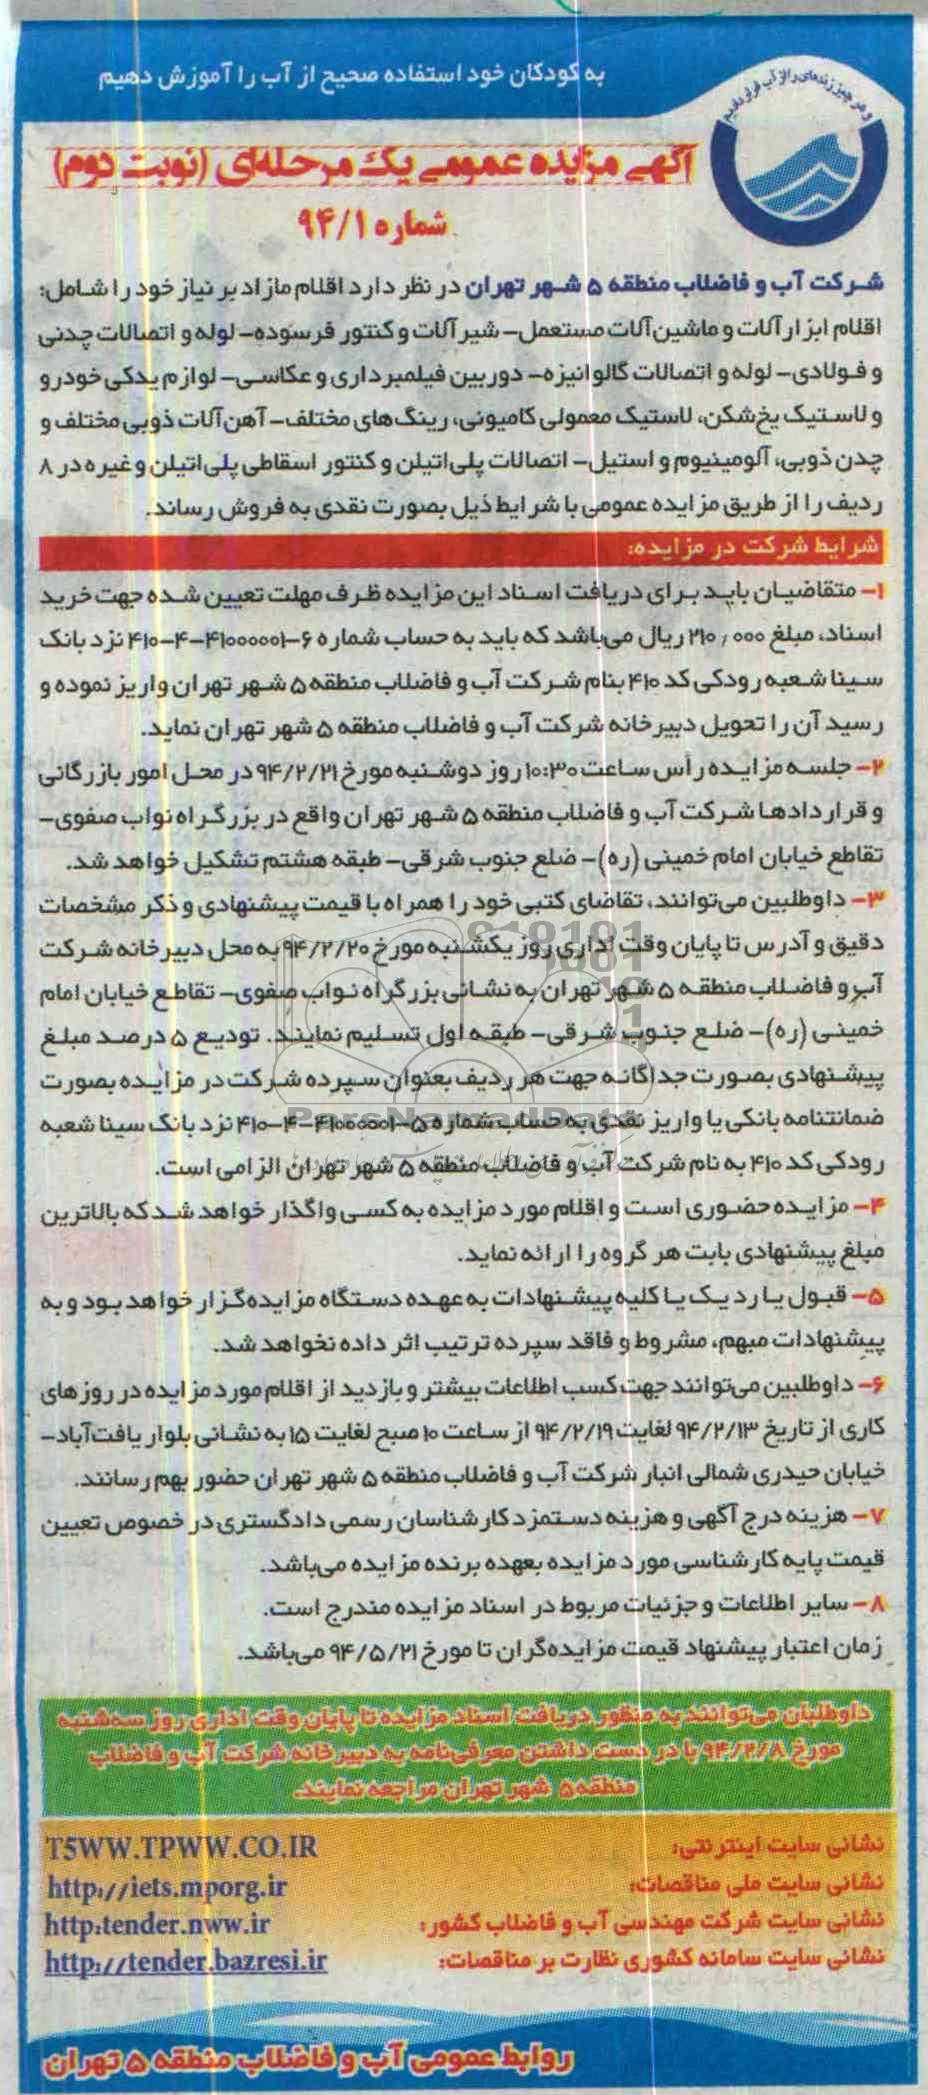 به کودکان خود استفاده صحیح از آب را آموزش دهیم
و هر چیز زنده‌ای را از آب قرار دادیم
آگهی مزایده عمومی یک مرحله‌ای (نوبت دوم)
شماره ۹۴/۱
شرکت آب و فاضلاب منطقه ۵ شهر تهران در نظر دارد اقلام مازاد بر نیاز خود را شامل:
اقلام ابزارآلات و ماشین‌آلات مستعمل- شیرآلات و کنتور فرسوده- لوله و اتصالات چدنی
و فولادی- لوله و اتصالات گالوانیزه- دوربین فیلمبرداری و عکاسی- لوازم یدکی خودرو
و لاستیک یخ‌شکن، لاستیک معمولی کامیونی، رینگ‌های مختلف- آهن‌آلات ذوبی مختلف و
چدن ذوبی، آلومینیوم و استیل- اتصالات پلی‌اتیلن و کنتور اسقاطی پلی‌اتیلن و غیره در ۸
ردیف را از طریق مزایده عمومی با شرایط ذیل بصورت نقدی به فروش رساند.
شرایط شرکت در مزایده:
۱- متقاضیان باید برای دریافت اسناد این مزایده ظرف مهلت تعیین شده جهت خرید
اسناد، مبلغ ۲۱۰٫۰۰۰ ریال می‌باشد که باید به حساب شماره ۶-۴۱۰۰۰۰۰۱-۴-۴۱۰ نزد بانک
سینا شعبه رودکی کد ۴۱۰ بنام شرکت آب و فاضلاب منطقه ۵ شهر تهران واریز نموده و
رسید آن را تحویل دبیرخانه شرکت آب و فاضلاب منطقه ۵ شهر تهران نماید.
۲- جلسه مزایده رأس ساعت ۱۰:۳۰ روز دوشنبه مورخ ۹۴/۲/۲۱ در محل امور بازرگانی
و قراردادها شرکت آب و فاضلاب منطقه ۵ شهر تهران واقع در بزرگراه نواب صفوی-
تقاطع خیابان امام خمینی (ره)- ضلع جنوب شرقی- طبقه هشتم تشکیل خواهد شد.
۳- داوطلبین می‌توانند، تقاضای کتبی خود را همراه با قیمت پیشنهادی و ذکر مشخصات
دقیق و آدرس تا پایان وقت اداری روز یکشنبه مورخ ۹۴/۲/۲۰ به محل دبیرخانه شرکت
آب و فاضلاب منطقه ۵ شهر تهران به نشانی بزرگراه نواب صفوی- تقاطع خیابان امام
خمینی (ره)- ضلع جنوب شرقی- طبقه اول تسلیم نمایند. تودیع ۵ درصد مبلغ
پیشنهادی بصورت جداگانه جهت هر ردیف بعنوان سپرده شرکت در مزایده بصورت
ضمانتنامه بانکی یا واریز نقدی به حساب شماره ۵-۴۱۰۰۰۰۰۱-۴-۴۱۰ نزد بانک سینا شعبه
رودکی کد ۴۱۰ به نام شرکت آب و فاضلاب منطقه ۵ شهر تهران الزامی است.
۴- مزایده حضوری است و اقلام مورد مزایده به کسی واگذار خواهد شد که بالاترین
مبلغ پیشنهادی بابت هر گروه را ارائه نماید.
۵- قبول یا رد یک یا کلیه پیشنهادات به عهده دستگاه مزایده‌گزار خواهد بود و به
پیشنهادات مبهم، مشروط و فاقد سپرده ترتیب اثر داده نخواهد شد.
۶- داوطلبین می‌توانند جهت کسب اطلاعات بیشتر و بازدید از اقلام مورد مزایده در روزهای
کاری از تاریخ ۹۴/۲/۱۳ لغایت ۹۴/۲/۱۹ از ساعت ۱۰ صبح لغایت ۱۵ به نشانی بلوار یافت‌آباد-
خیابان حیدری شمالی انبار شرکت آب و فاضلاب منطقه ۵ شهر تهران حضور بهم رسانند.
۷- هزینه درج آگهی و هزینه دستمزد کارشناسان رسمی دادگستری در خصوص تعیین
قیمت پایه کارشناسی مورد مزایده بعهده برنده مزایده می‌باشد.
۸- سایر اطلاعات و جزئیات مربوط در اسناد مزایده مندرج است.
زمان اعتبار پیشنهاد قیمت مزایده‌گران تا مورخ ۹۴/۵/۲۱ می‌باشد.
داوطلبان می‌توانند به منظور دریافت اسناد مزایده تا پایان وقت اداری روز سه‌شنبه
مورخ ۹۴/۲/۸ با در دست داشتن معرفی‌نامه به دبیرخانه شرکت آب و فاضلاب
منطقه ۵ شهر تهران مراجعه نمایند.
نشانی سایت اینترنتی: T5WW.TPWW.CO.IR
نشانی سایت ملی مناقصات: http://iets.mporg.ir
نشانی سایت شرکت مهندسی آب و فاضلاب کشور: http:tender.nww.ir
نشانی سایت سامانه کشوری نظارت بر مناقصات: http://tender.bazresi.ir
روابط عمومی آب و فاضلاب منطقه ۵ تهران
ParsNamadData